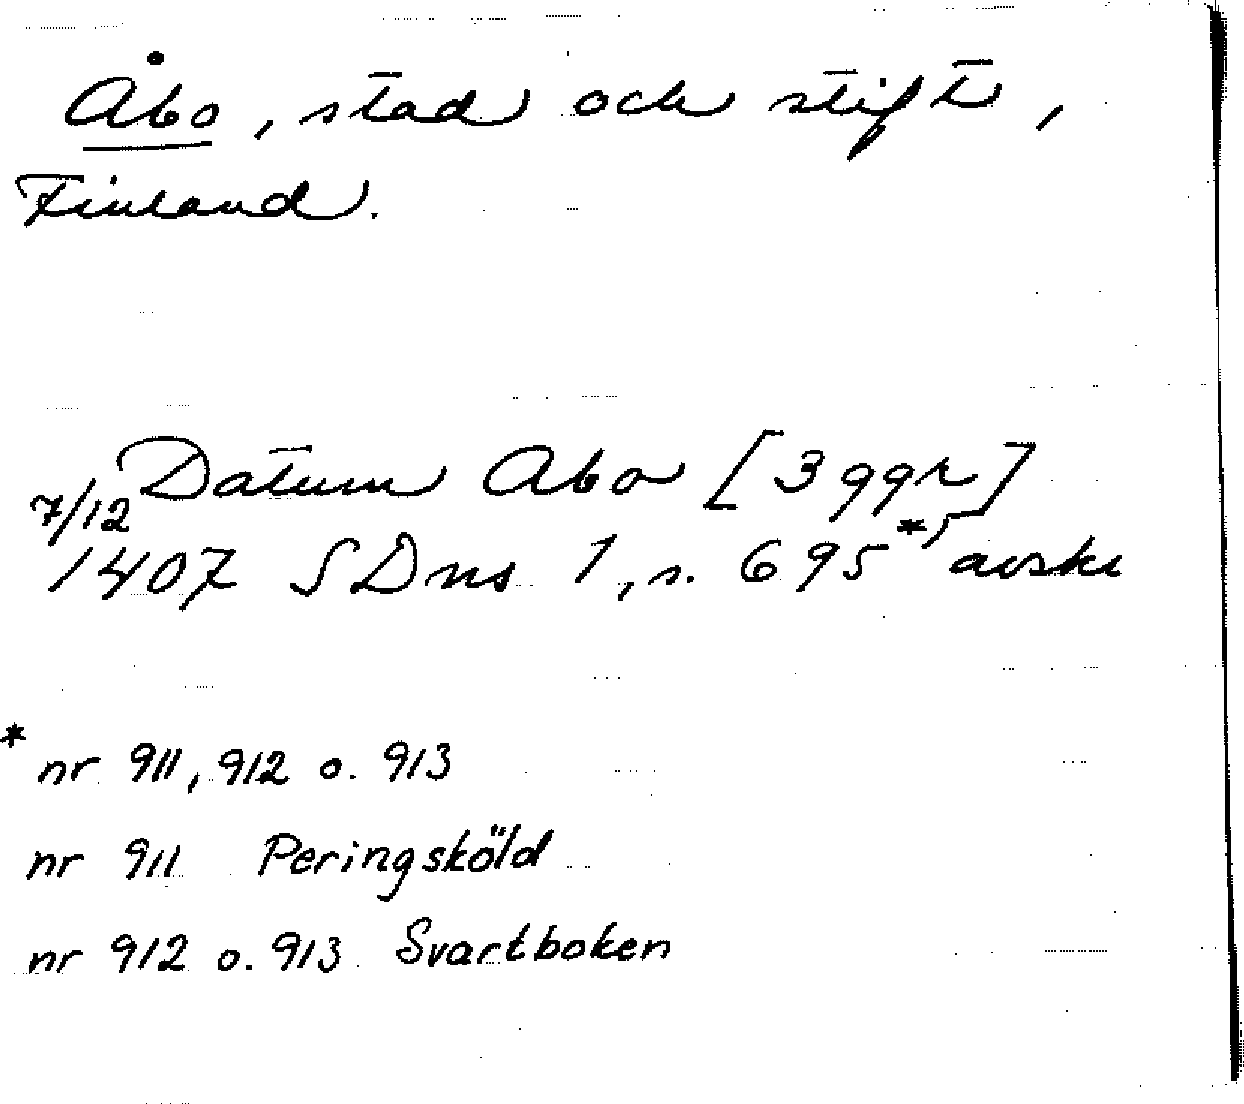 Åbo, stad och stift,
Finland.
Datum Abo [3 ggr]
7/12
1407 SDns 1, s. 695*) avskr
* nr 911, 912 o. 913
nr 911 Peringsköld
nr 912 o. 913 Svartboken